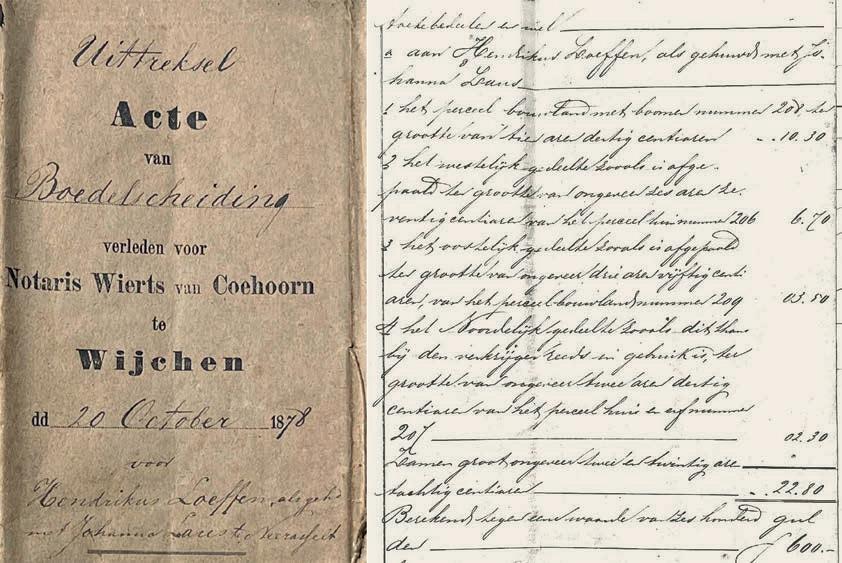 Uittreksel
Acte
van
Boedelscheiding
verleden voor
Notaris Wierts van Coehoorn
te
Wijchen
dd 20 October 1878
voor
Hendrikus Loeffen, als geh:d
met Johanna Laus te
toebedeelen en wel
a aan Hendrikus Loeffen, als gehuwd met Jo-
hanna Laus
1 het perceel bouwland met boomen nummer 208, ter
grootte van tien aren dertig centiaren 10.30
2 het westelijk gedeelte zooals is afge-
paald ter grootte van ongeveer zes aren ze-
ventig centiaren van het perceel huis nummer 206 6.70
3 het oostelijk gedeelte zooals is afgepaald
ter grootte van ongeveer drie aren vijftig centi
aren, van het perceel bouwland nummer 209 03.50
4 het Noordelijk gedeelte zooals dit thans
bij den verkrijger reeds in gebruik is, ter
grootte van ongeveer twee aren dertig
centiaren van het perceel huis en erf nummer
207 02.30
Zamen groot ongeveer twee en twintig aren
tachtig centiaren 22.80
Berekend tegen eene waarde van zes honderd gul
den f 600.-